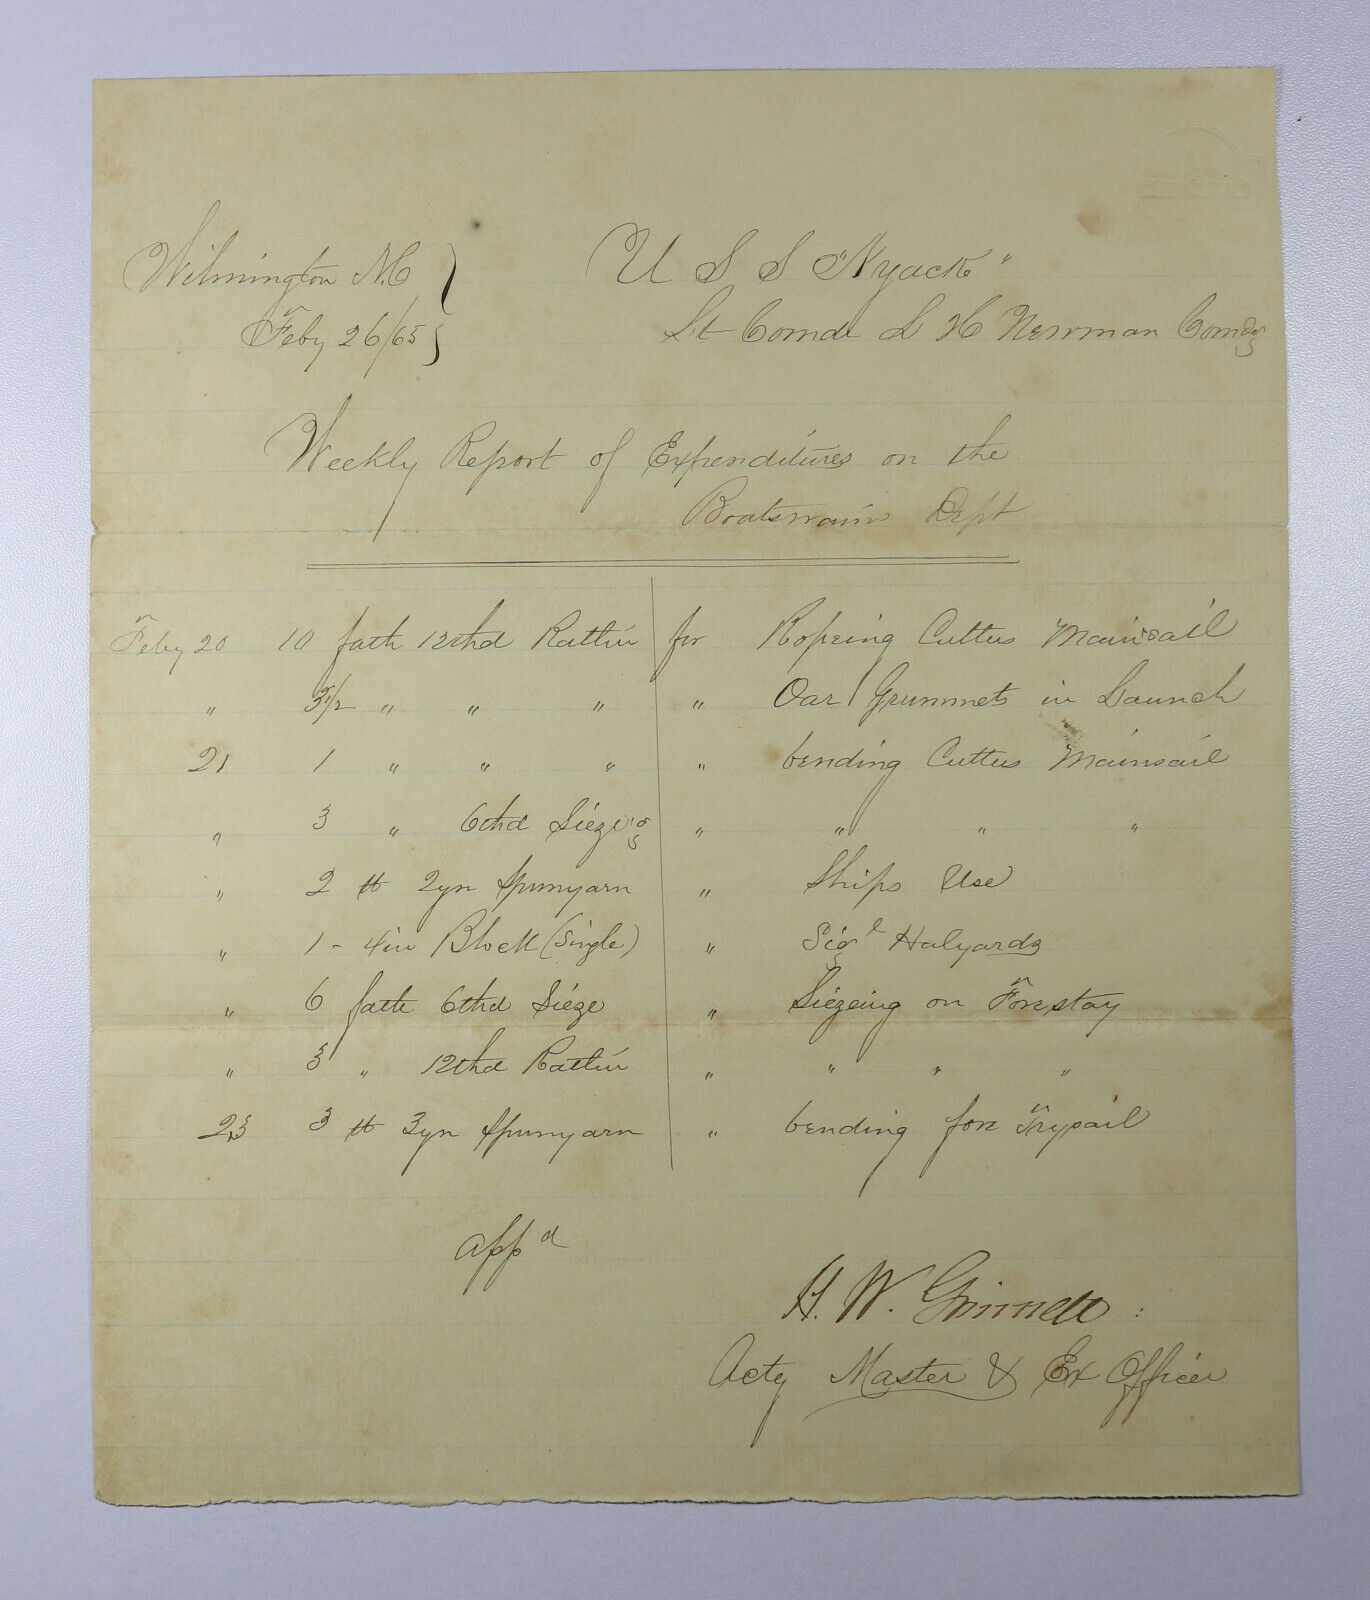 Wilmington N.C
Feby 26/65
U S S "Nyack"
Lt Comdr L H Newman Comdg
Weekly Report of Expenditures on the
Boatswain Dept
Feby 20 10 fath 12thd Ratlin for Ropeing Cutters Mainsail
" 3 1/2 " " " " Oar Grummets in Launch
21 1 " " " " bending Cutters Mainsail
" 3 " 6thd Siezeg " " " "
" 2 lb 2yn Spunyarn " Ships Use
" 1 - 4in Block (Single) " Sigl Halyards
" 6 fath 6thd Sieze " Siezeing on Forestay
" 3 " 12thd Ratlin " " " "
23 3 lb 3yn Spunyarn " bending fore Trysail
appd
H. W. Grinnell
Actg Master & Ex Officer